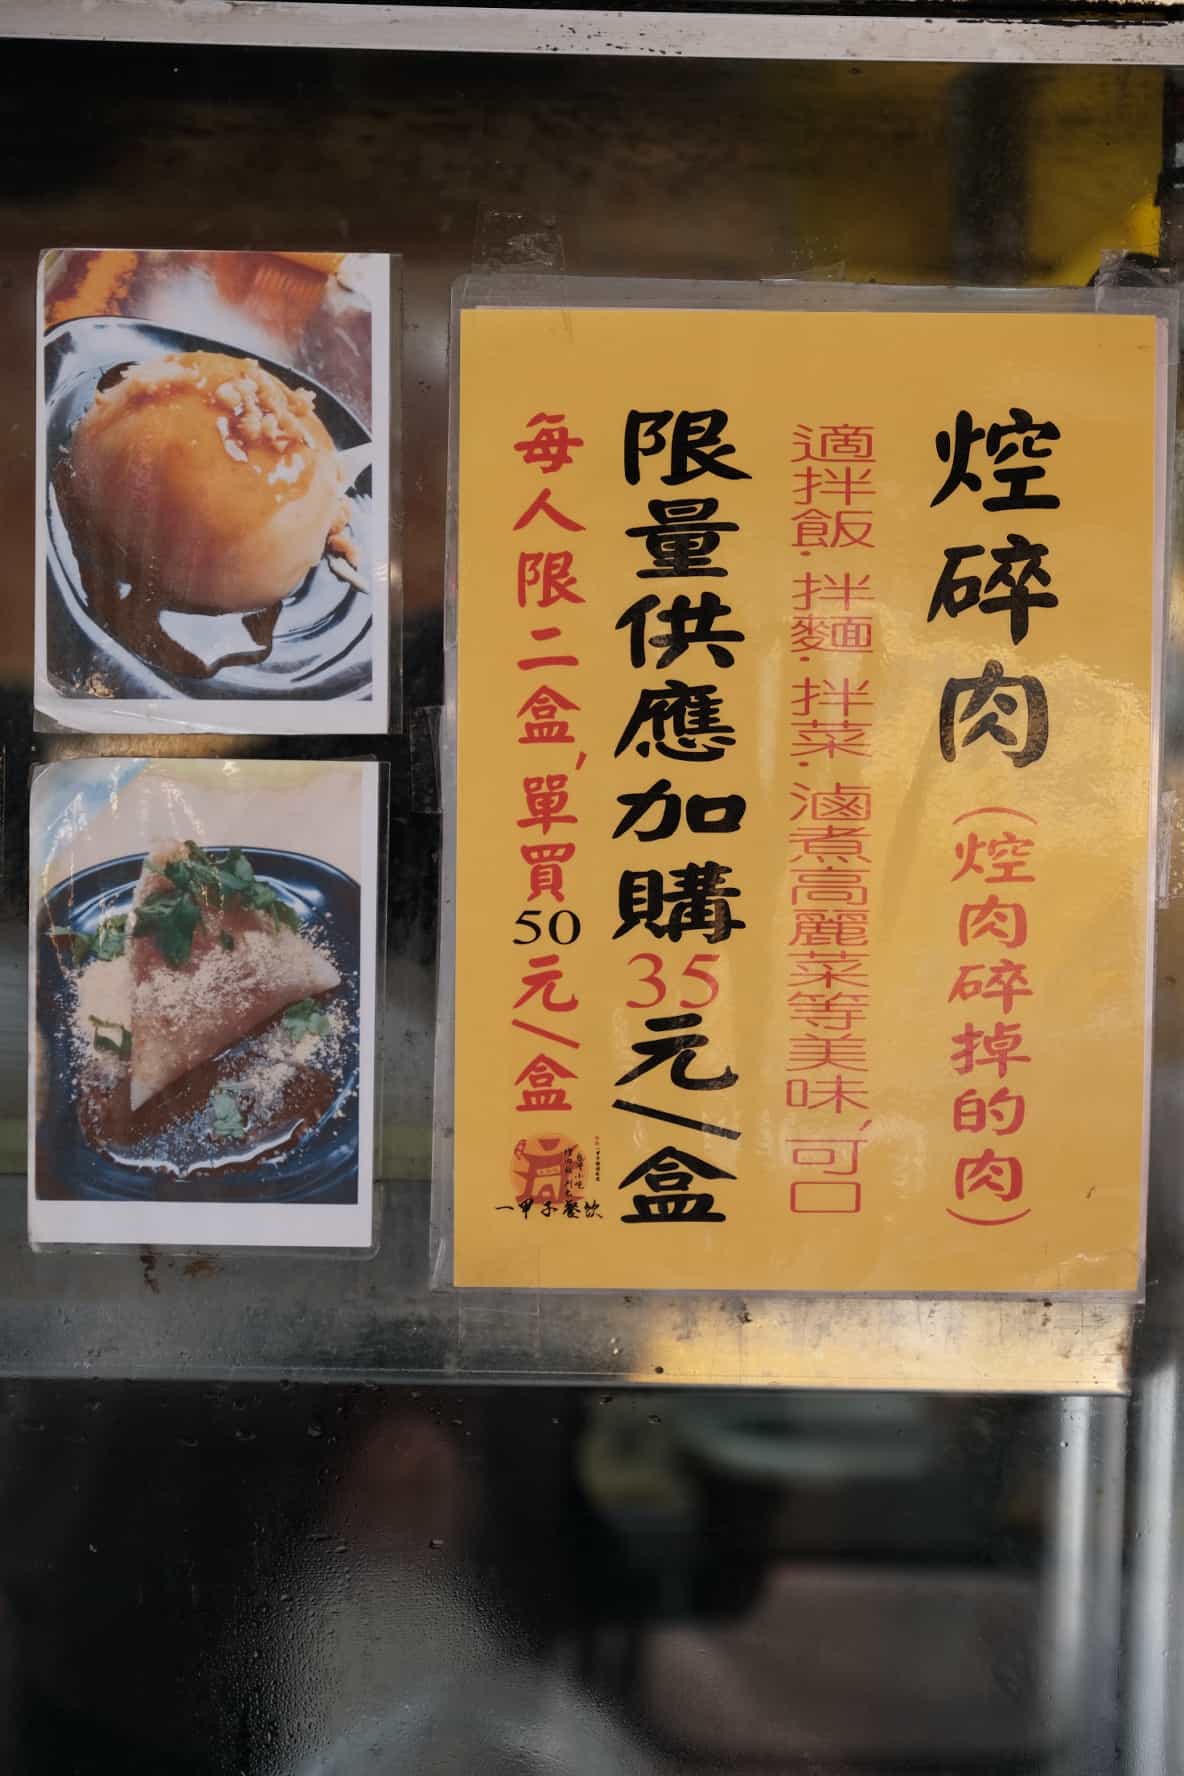 焢碎肉（焢肉碎掉的肉）
適拌飯．拌麵．拌菜．滷煮高麗菜等美味，可口
限量供應加購35元/盒
每人限二盒，單買50元/盒
一甲子餐飲